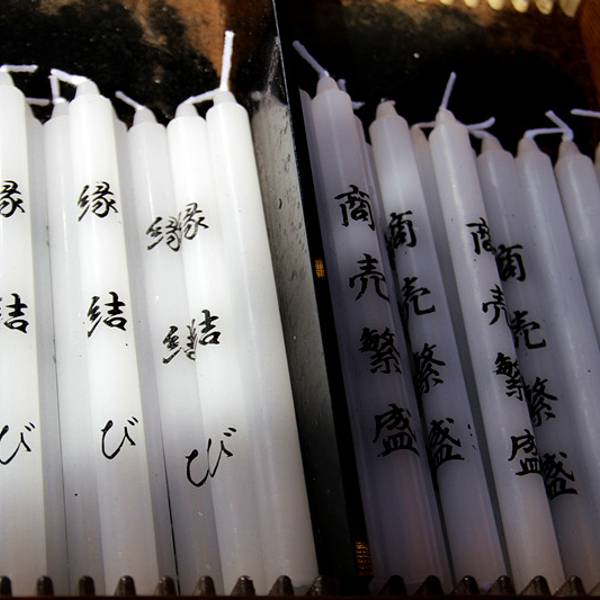 縁結び
縁結び
縁結び
縁結び
商売繁盛
商売繁盛
商売繁盛
商売繁盛